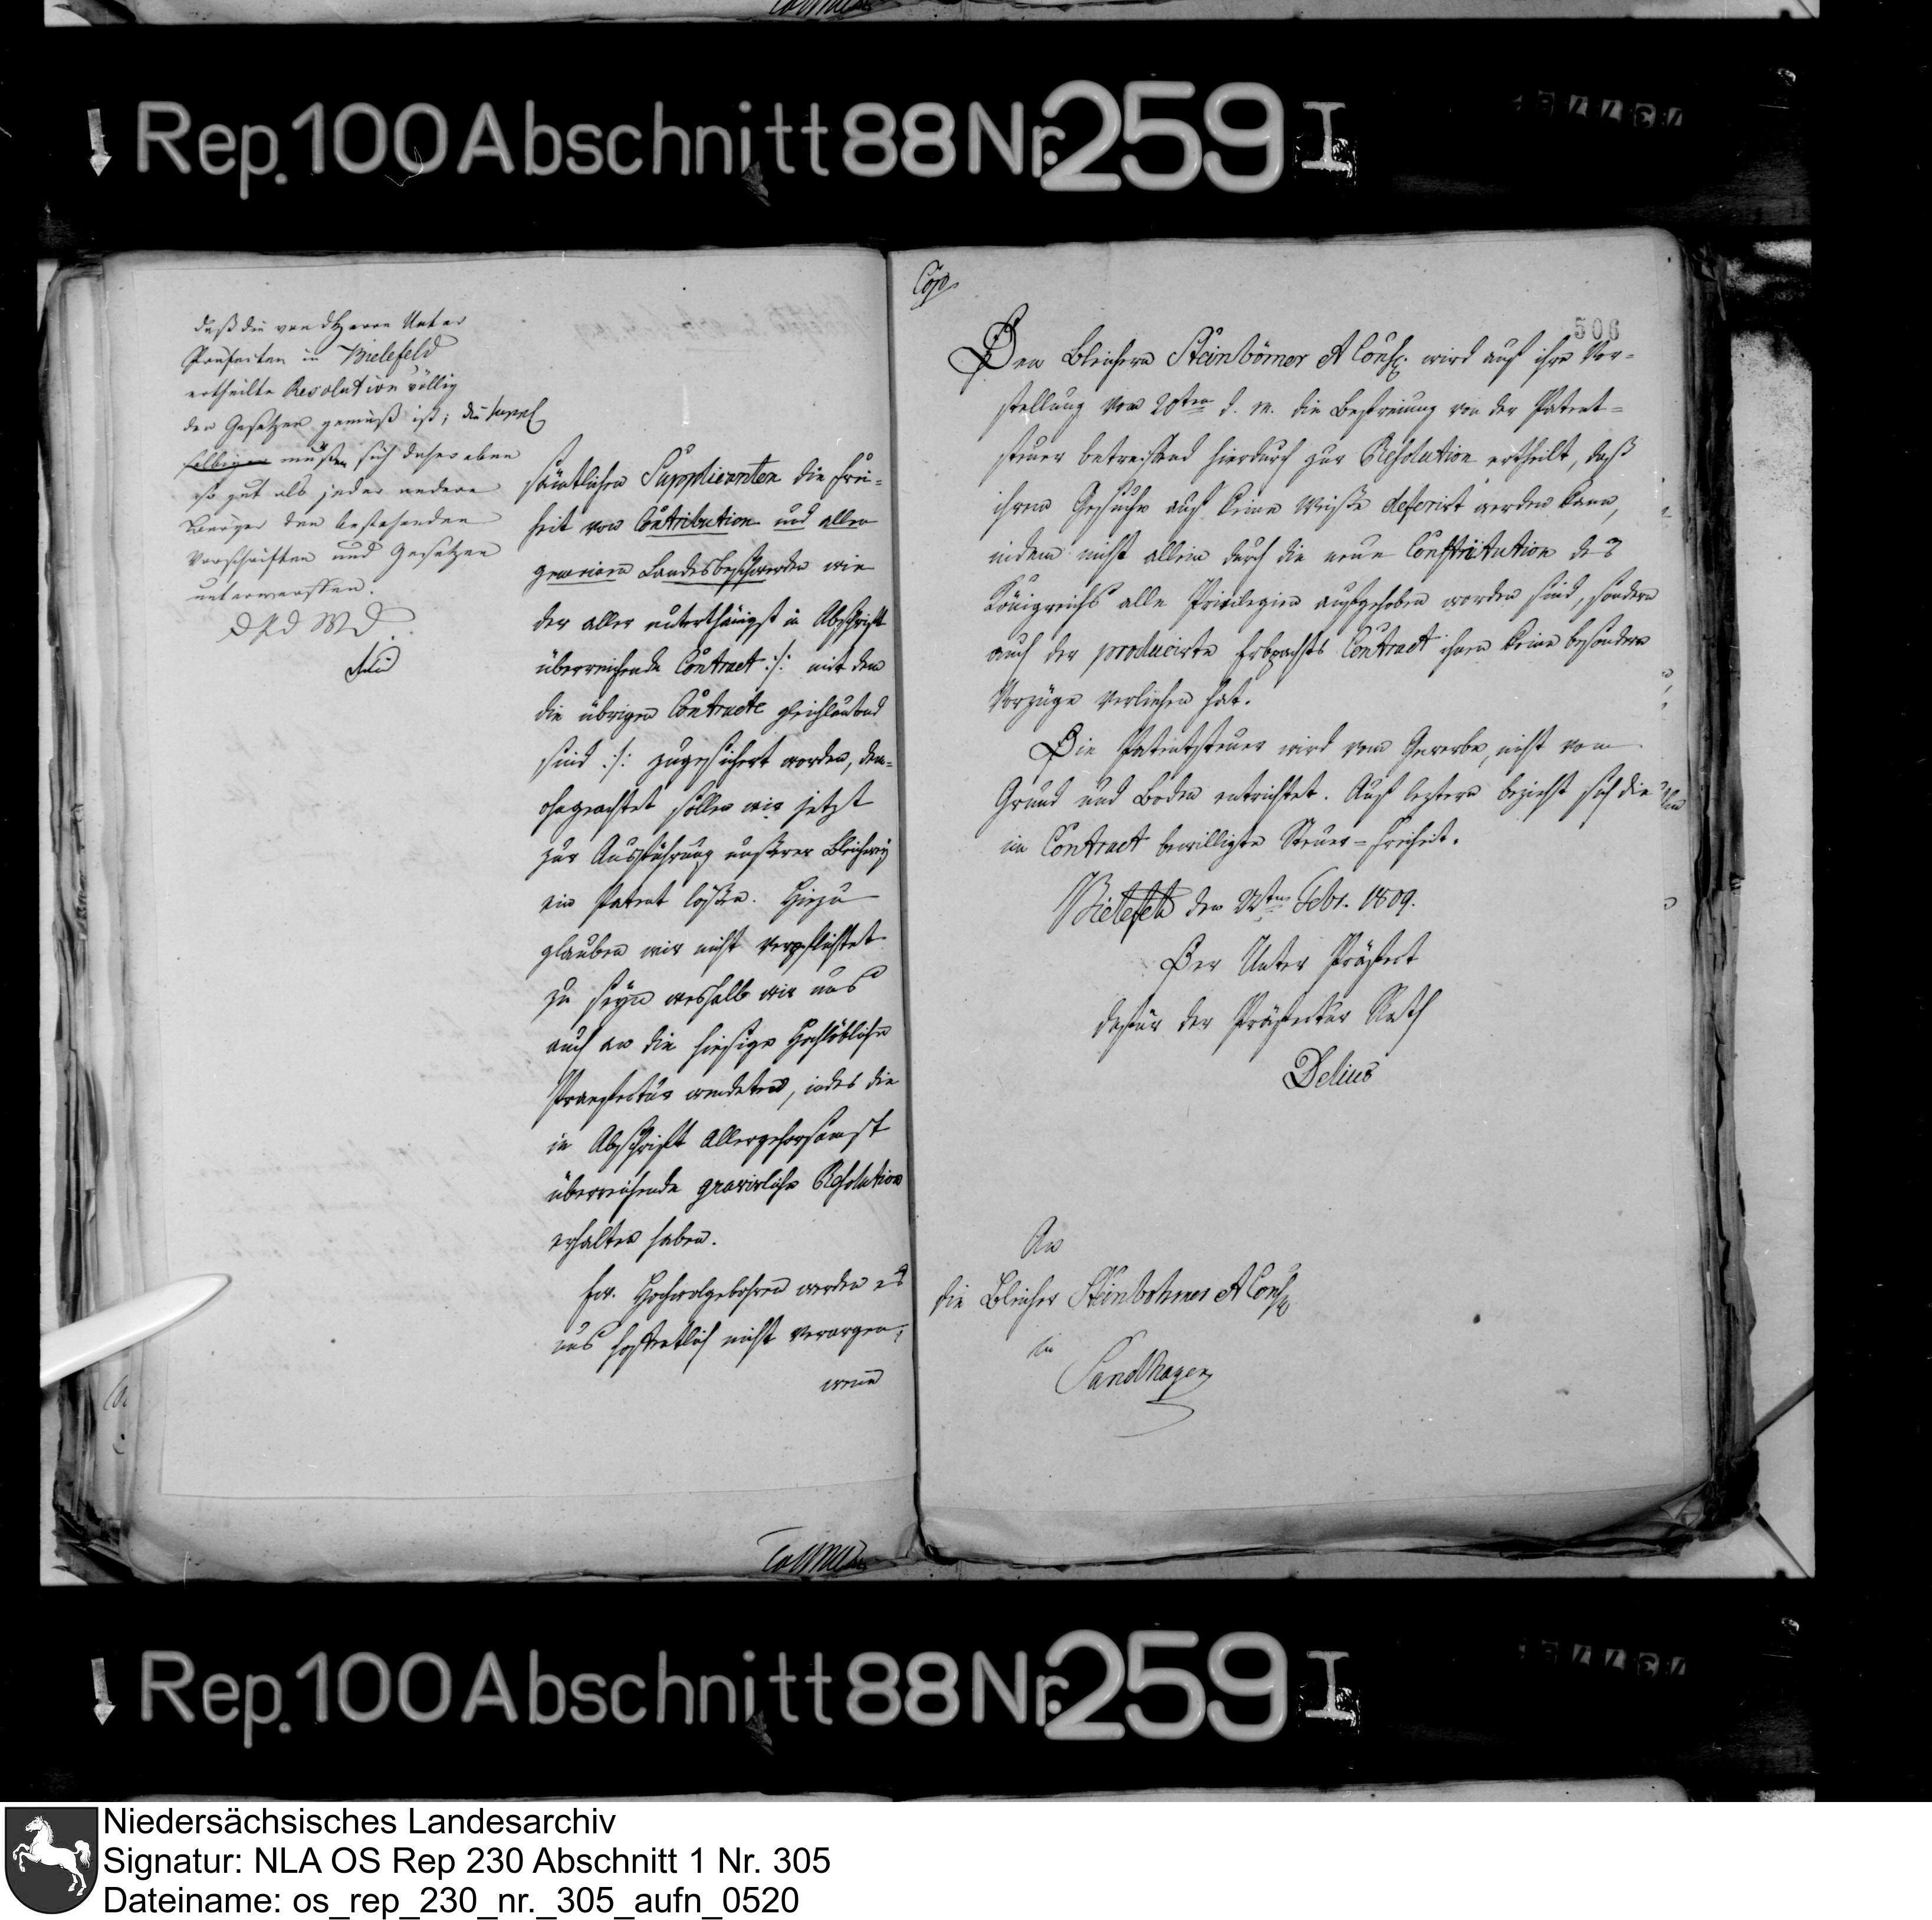 Rep. 100 Abschnitt 88 Nr. 259 I
daß die von dHerrn Unter
Praefecten in Bielefeld
ertheilte Resolution völlig
den Gesetzen gemäß ist; die suppl
selbigen müßten sich daher eben
so gut als jeder andere
Bürger den bestehenden
Vorschriften und Gesetzen
unterwerffen.
sämtlichen Supplicanten die Frei-
heit von Contribution und allen
gemeinen Landesbeschwerden wie
der aller unterthänigst in Abschrift
überreichende Contract :/: mit dem
die übrigen Contracte gleichlautend
sind :/: zugesichert worden, dem-
ohngeachtet sollen wir jetzt
zur Ausführung unserer Bleicherey
ein Patent lößen. Hiezu
glauben wir nicht verpflichtet
zu seyn weshalb wir uns
auch an die hiesige Hochlöbliche
Praefectur wendeten, indes die
in Abschrift allergehorsamst
überreichende gravirliche Resolution
erhalten haben.
Ew. Hochwolgebohren werden es
uns hoffentlich nicht verargen,
wenn
Cop.
506
Den Bleichern Steinbömer & Cons. wird auf ihre Vor-
stellung vom 20ten d. M. die Befreiung von der Patent-
steuer betreffend hierdurch zur Resolution ertheilt, daß
ihrem Gesuche auf keine Weise deferirt werden kann,
indem nicht allein durch die neue Constitution des
Königreichs alle Privilegien aufgehoben worden sind, sondern
auch der producirte Erbpachts Contract ihnen keine besondere
Vorzüge verliehen hat.
Die Patentsteuer wird vom Gewerbe, nicht vom
Grund und Boden entrichtet. Auf leztern bezieht sich die
im Contract bewilligte Steuer-Freiheit.
Bielefeld den 22ten Febr. 1809.
Der Unter Präfect
dafür der Präfectur Rath
Delius
An
die Bleicher Steinbohmer & Cons
in
Sandhagen
Rep. 100 Abschnitt 88 Nr. 259 I
Niedersächsisches Landesarchiv
Signatur: NLA OS Rep 230 Abschnitt 1 Nr. 305
Dateiname: os_rep_230_nr._305_aufn_0520